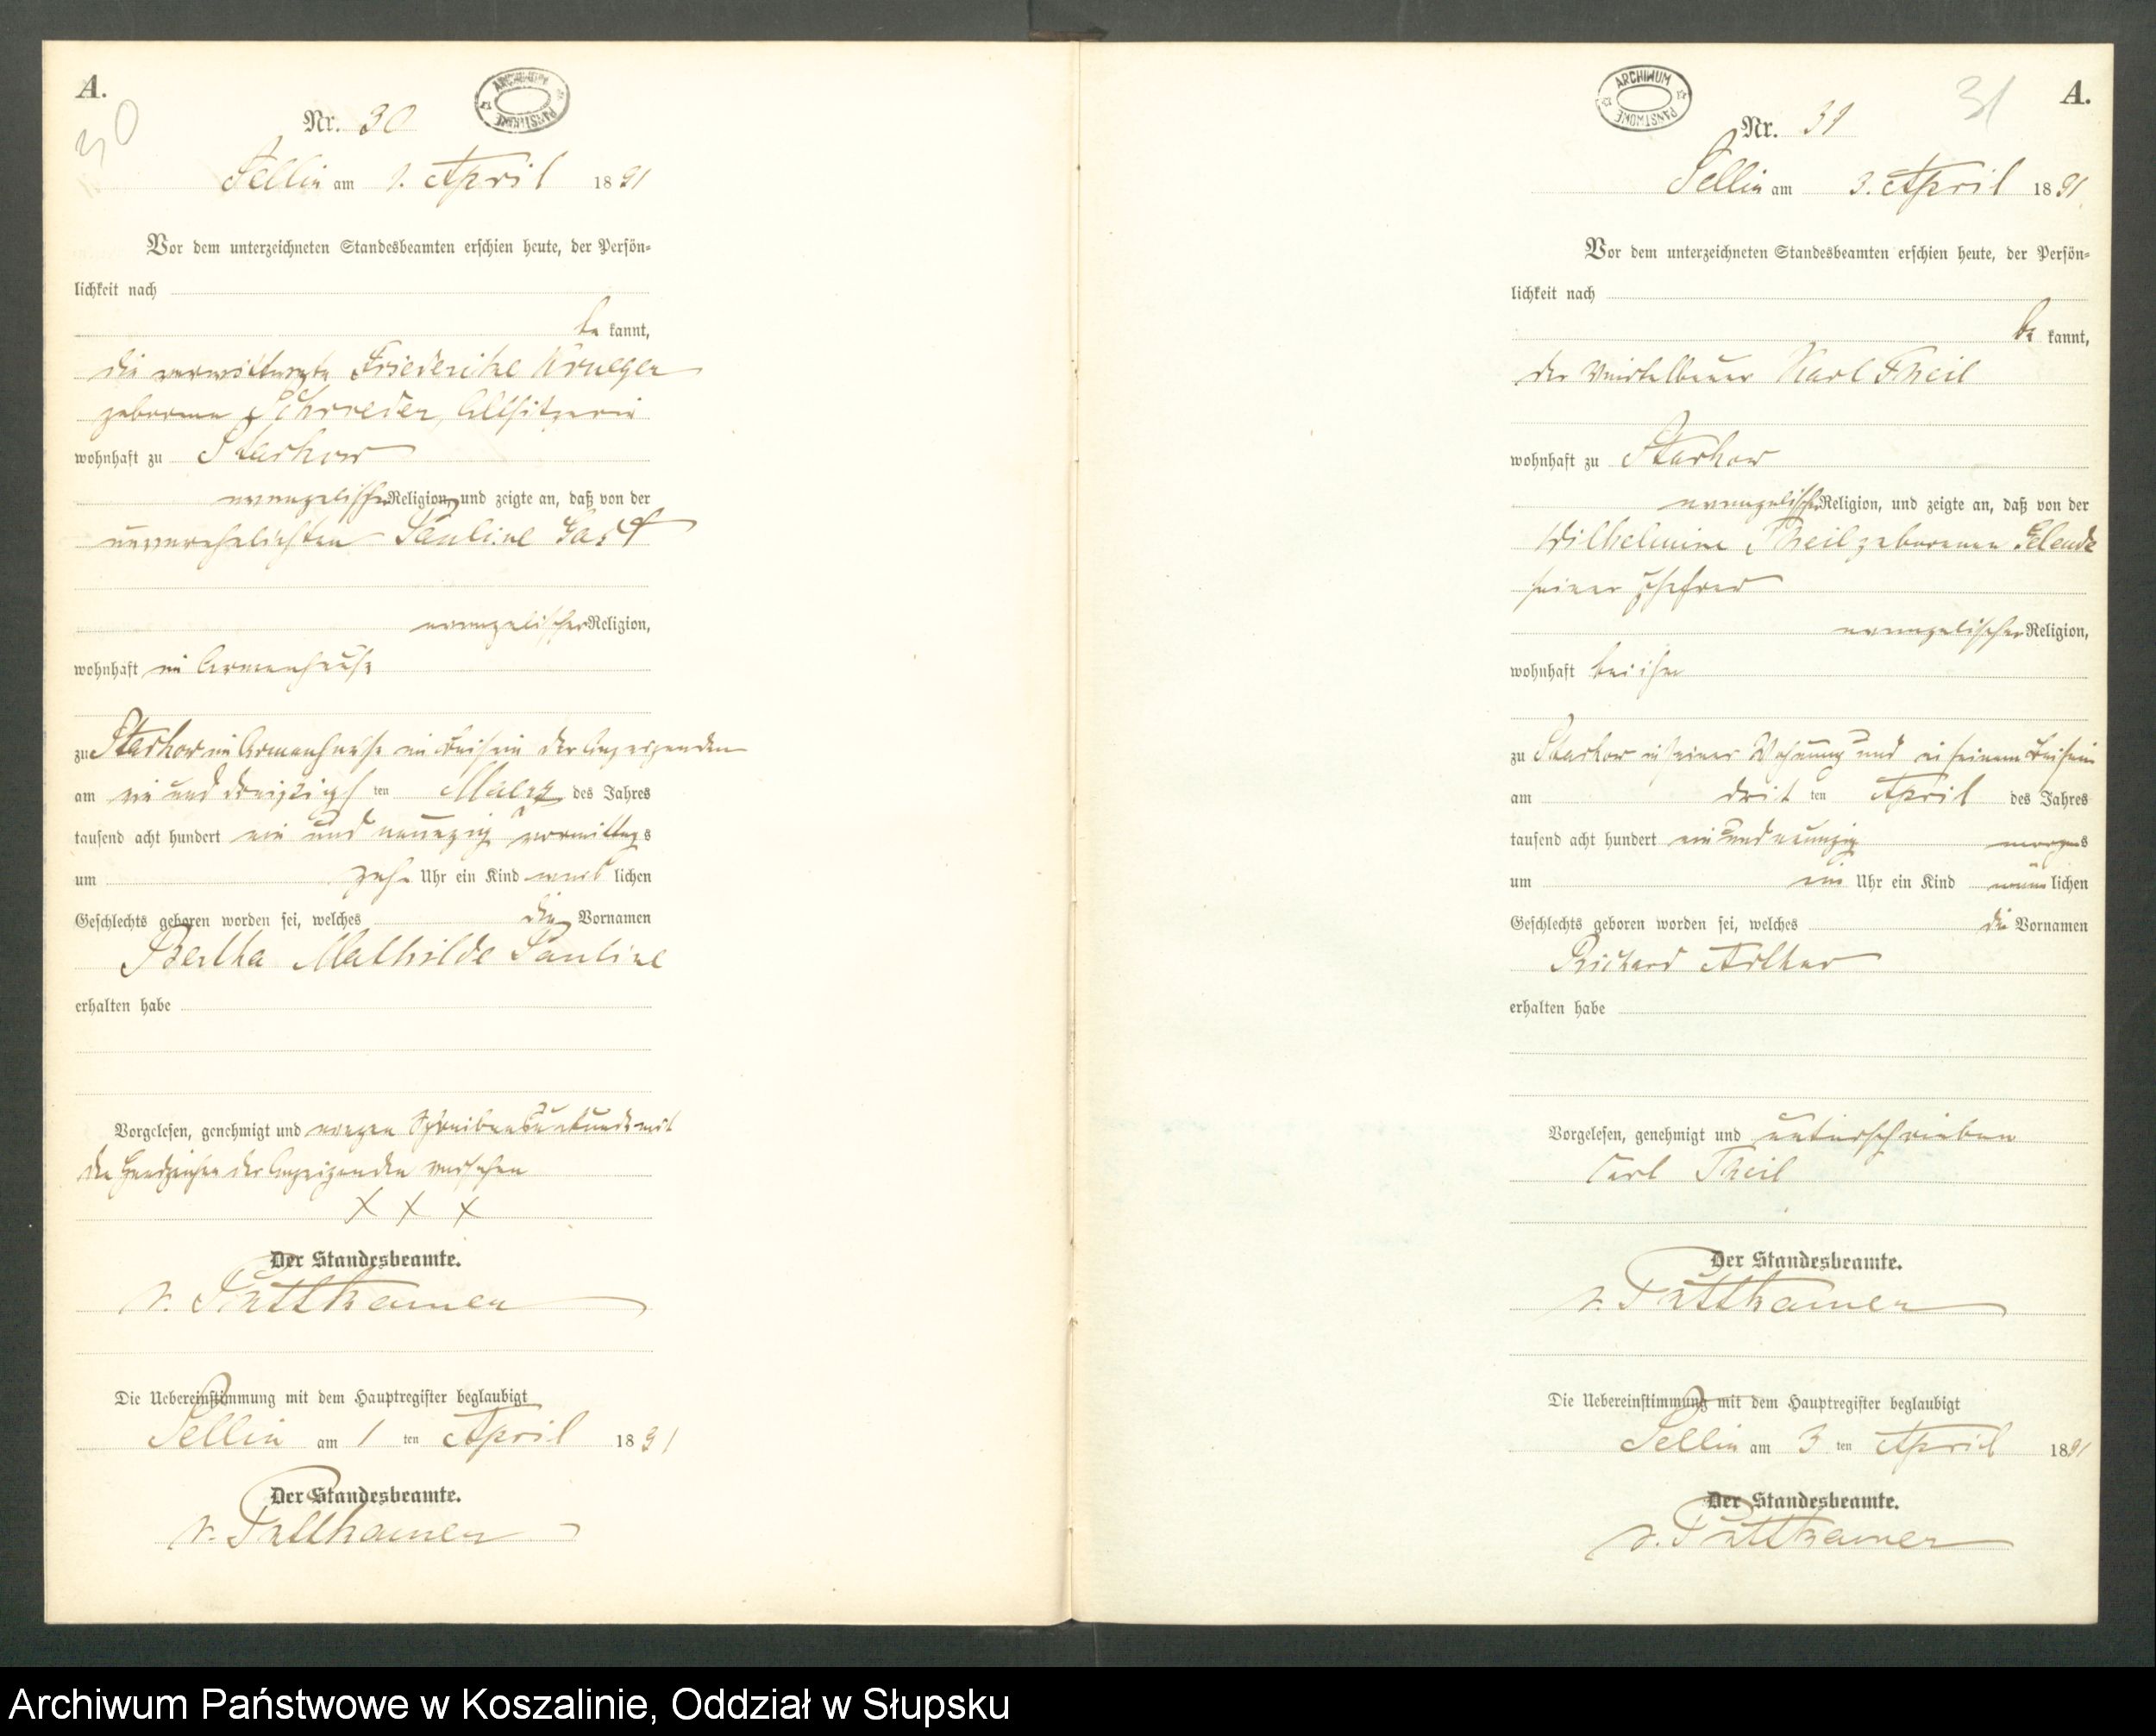 A.
30
ARCHIWUM PAŃSTWOWE
Nr. 30
Sellin am 1. April 1891
Vor dem unterzeichneten Standesbeamten erschien heute, der Persön-
lichkeit nach
be kannt,
die verwittwete Friederike Krueger
geborene Schroeder, Altsitzerin
wohnhaft zu Starkow
evangelischer Religion, und zeigte an, daß von der
unverehelichten Pauline Gast
evangelischer Religion,
wohnhaft im Armenhause
zu Starkow im Armenhause im Beisein der Anzeigenden
am ein und dreißigsten Maerz des Jahres
tausend acht hundert ein und neunzig vormittags
um zehn Uhr ein Kind weiblichen
Geschlechts geboren worden sei, welches die Vornamen
Bertha Mathilde Pauline
erhalten habe
Vorgelesen, genehmigt und wegen Schreibensunkunde mit
den Handzeichen der Anzeigenden versehen
X X X
Der Standesbeamte.
v. Puttkamer
Die Uebereinstimmung mit dem Hauptregister beglaubigt
Sellin am 1 ten April 1891
Der Standesbeamte.
v. Puttkamer
A.
31
ARCHIWUM PAŃSTWOWE
Nr. 31
Sellin am 3. April 1891
Vor dem unterzeichneten Standesbeamten erschien heute, der Persön-
lichkeit nach
be kannt,
der Viertelbauer Karl Theil
wohnhaft zu Starkow
evangelischer Religion, und zeigte an, daß von der
Wilhelmine Theil geborenen
seiner Ehefrau
evangelischer Religion,
wohnhaft bei ihm
zu Starkow in seiner Wohnung und in seinem Beisein
am dritten April des Jahres
tausend acht hundert ein und neunzig morgens
um ein Uhr ein Kind männlichen
Geschlechts geboren worden sei, welches die Vornamen
Richard Arthur
erhalten habe
Vorgelesen, genehmigt und unterschrieben
Carl Theil
Der Standesbeamte.
v. Puttkamer
Die Uebereinstimmung mit dem Hauptregister beglaubigt
Sellin am 3 ten April 1891
Der Standesbeamte.
v. Puttkamer
Archiwum Państwowe w Koszalinie, Oddział w Słupsku